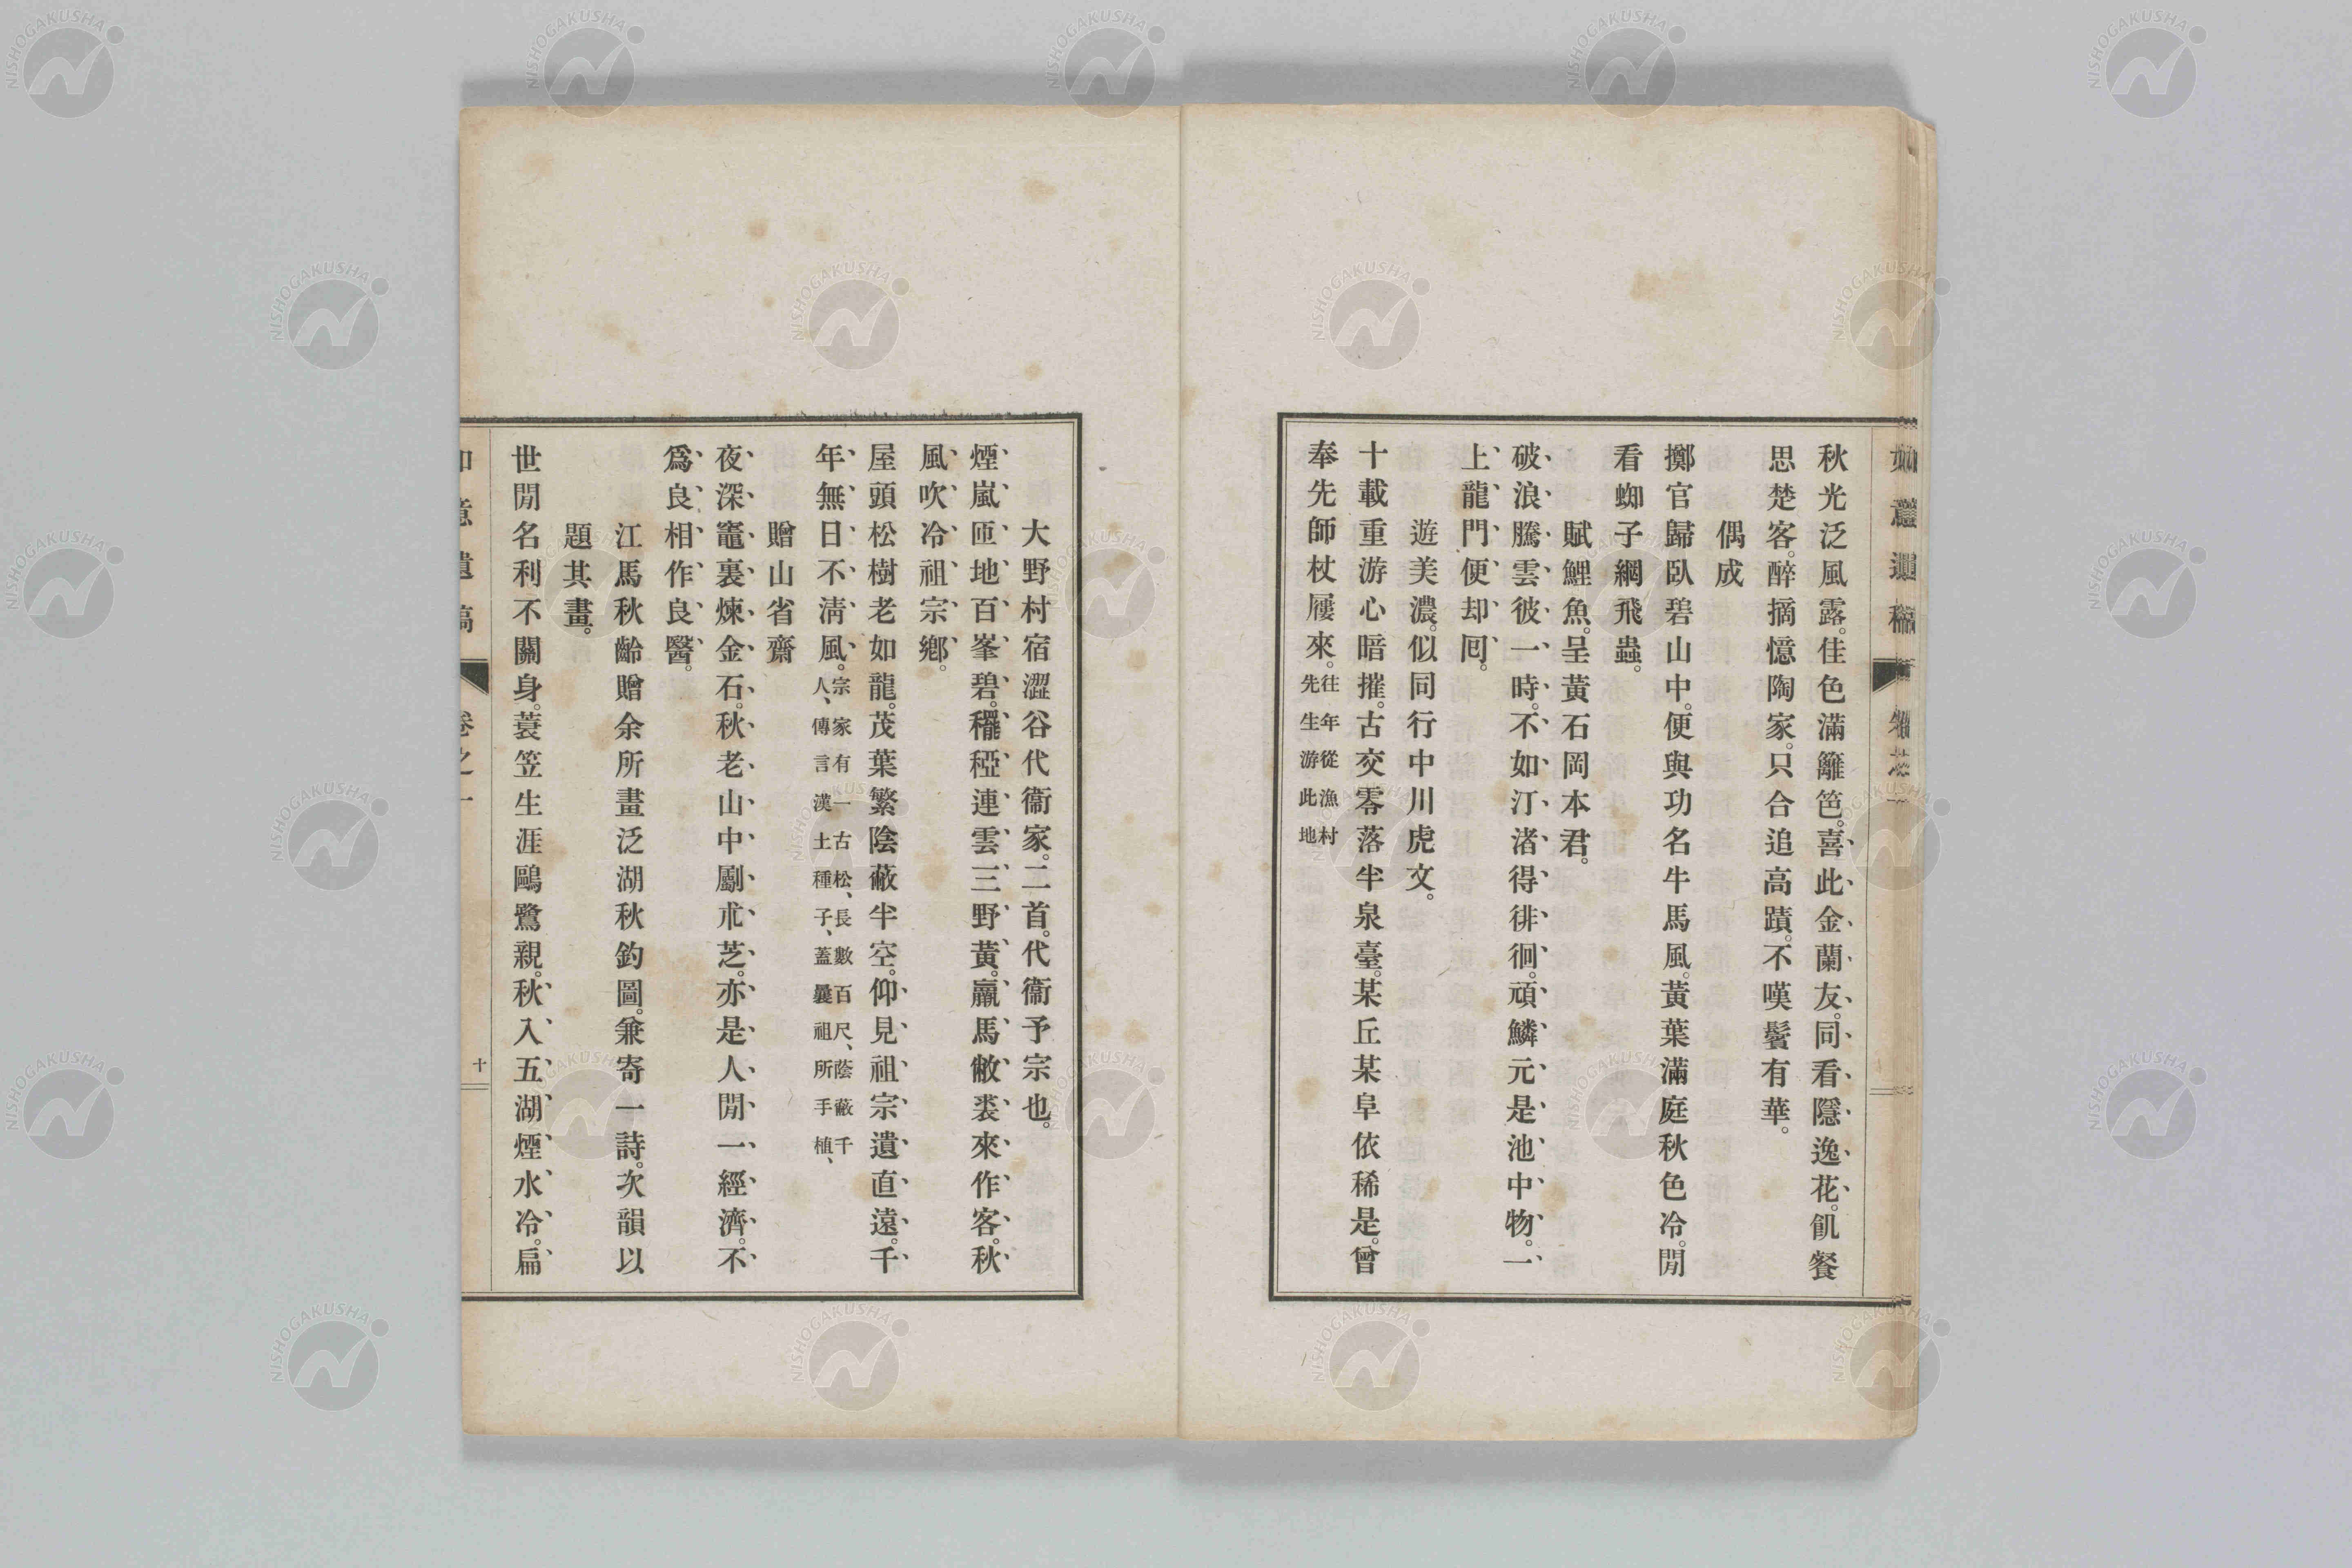 秋光泛風露。佳色滿籬笆。喜此金蘭友。同看隱逸花。飢餐
思楚客。醉摘憶陶家。只合追高蹟。不嘆鬢有華。
偶成
擲官歸臥碧山中。便與功名牛馬風。黃葉滿庭秋色冷。閒
看蜘子網飛蟲。
賦鯉魚。呈黃石岡本君。
破浪騰雲彼一時。不如汀渚得徘徊。頑鱗元是池中物。一
上龍門便却回。
遊美濃。似同行中川虎文。
十載重游心暗摧。古交零落半泉臺。某丘某阜依稀是。曾
奉先師杖屨來。往年從漁村先生游此地
大野村宿澀谷代衞家。二首。代衞予宗也。
煙嵐匝地百峯碧。䆉稏連雲三野黃。羸馬敝裘來作客。秋
風吹冷祖宗鄉。
屋頭松樹老如龍。茂葉繁陰蔽半空。仰見祖宗遺直遠。千
年無日不淸風。宗家有一古松、長數百尺、蔭蔽千人、傳言漢土種子、蓋曩祖所手植、
贈山省齋
夜深竈裏煉金石。秋老山中劚朮芝。亦是人閒一經濟。不
爲良相作良醫。
江馬秋齡贈余所畫泛湖秋釣圖。兼寄一詩。次韻以
題其畫。
世閒名利不關身。蓑笠生涯鷗鷺親。秋入五湖煙水冷。扁
如意遺稿 卷之一 十
NISHOGAKUSHA